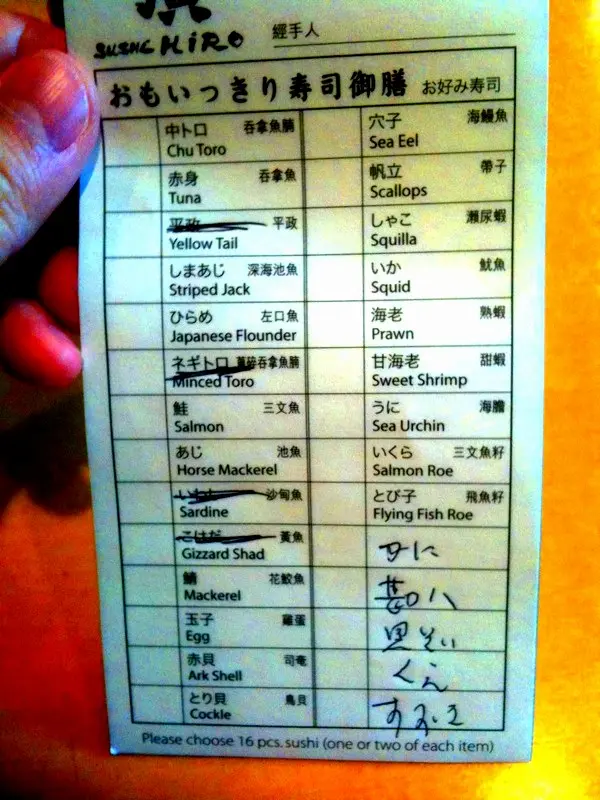 SUSHI HiRO
經手人
おもいっきり寿司御膳 お好み寿司
中トロ 吞拿魚腩
Chu Toro
赤身 吞拿魚
Tuna
平政 平政
Yellow Tail
しまあじ 深海池魚
Striped Jack
ひらめ 左口魚
Japanese Flounder
ネギトロ 蔥碎吞拿魚腩
Minced Toro
鮭 三文魚
Salmon
あじ 池魚
Horse Mackerel
いわし 沙甸魚
Sardine
こはだ 黃魚
Gizzard Shad
鯖 花鮫魚
Mackerel
玉子 雞蛋
Egg
赤貝 司奄
Ark Shell
とり貝 鳥貝
Cockle
穴子 海鰻魚
Sea Eel
帆立 帶子
Scallops
しゃこ 瀨尿蝦
Squilla
いか 魷魚
Squid
海老 熟蝦
Prawn
甘海老 甜蝦
Sweet Shrimp
うに 海膽
Sea Urchin
いくら 三文魚籽
Salmon Roe
とび子 飛魚籽
Flying Fish Roe
カに
黒そい
くえ
すずき
Please choose 16 pcs. sushi (one or two of each item)